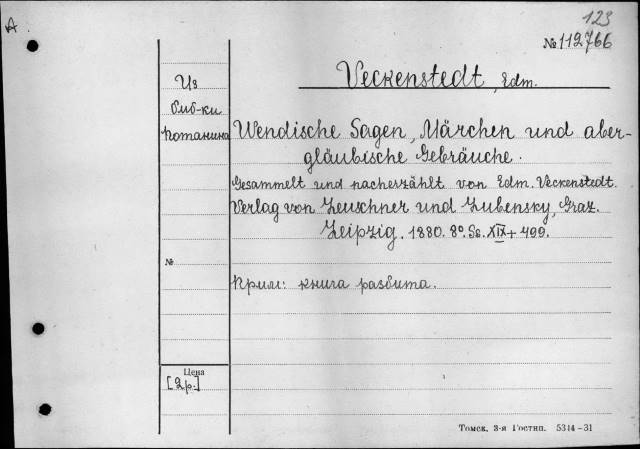 A
123
№ 112766
Veckenstedt, Edm.
Из
биб-ки
Потанина
Wendische Sagen, Märchen und aber-
gläubische Gebräuche.
Gesammelt und nacherzählt von Edm. Veckenstedt.
Verlag von Leuschner und Lubensky, Graz.
Leipzig. 1880. 8°. Ss. XIX + 499.
№
Прим: книга разбита.
Цена
[2р.]
Томск, 3-я Гостип. 5314-31